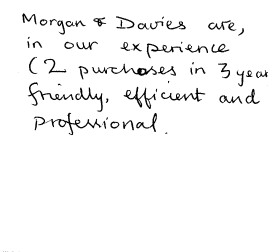 Morgan & Davies are,
in our experience
(2 purchases in 3 year
friendly, efficient and
professional.